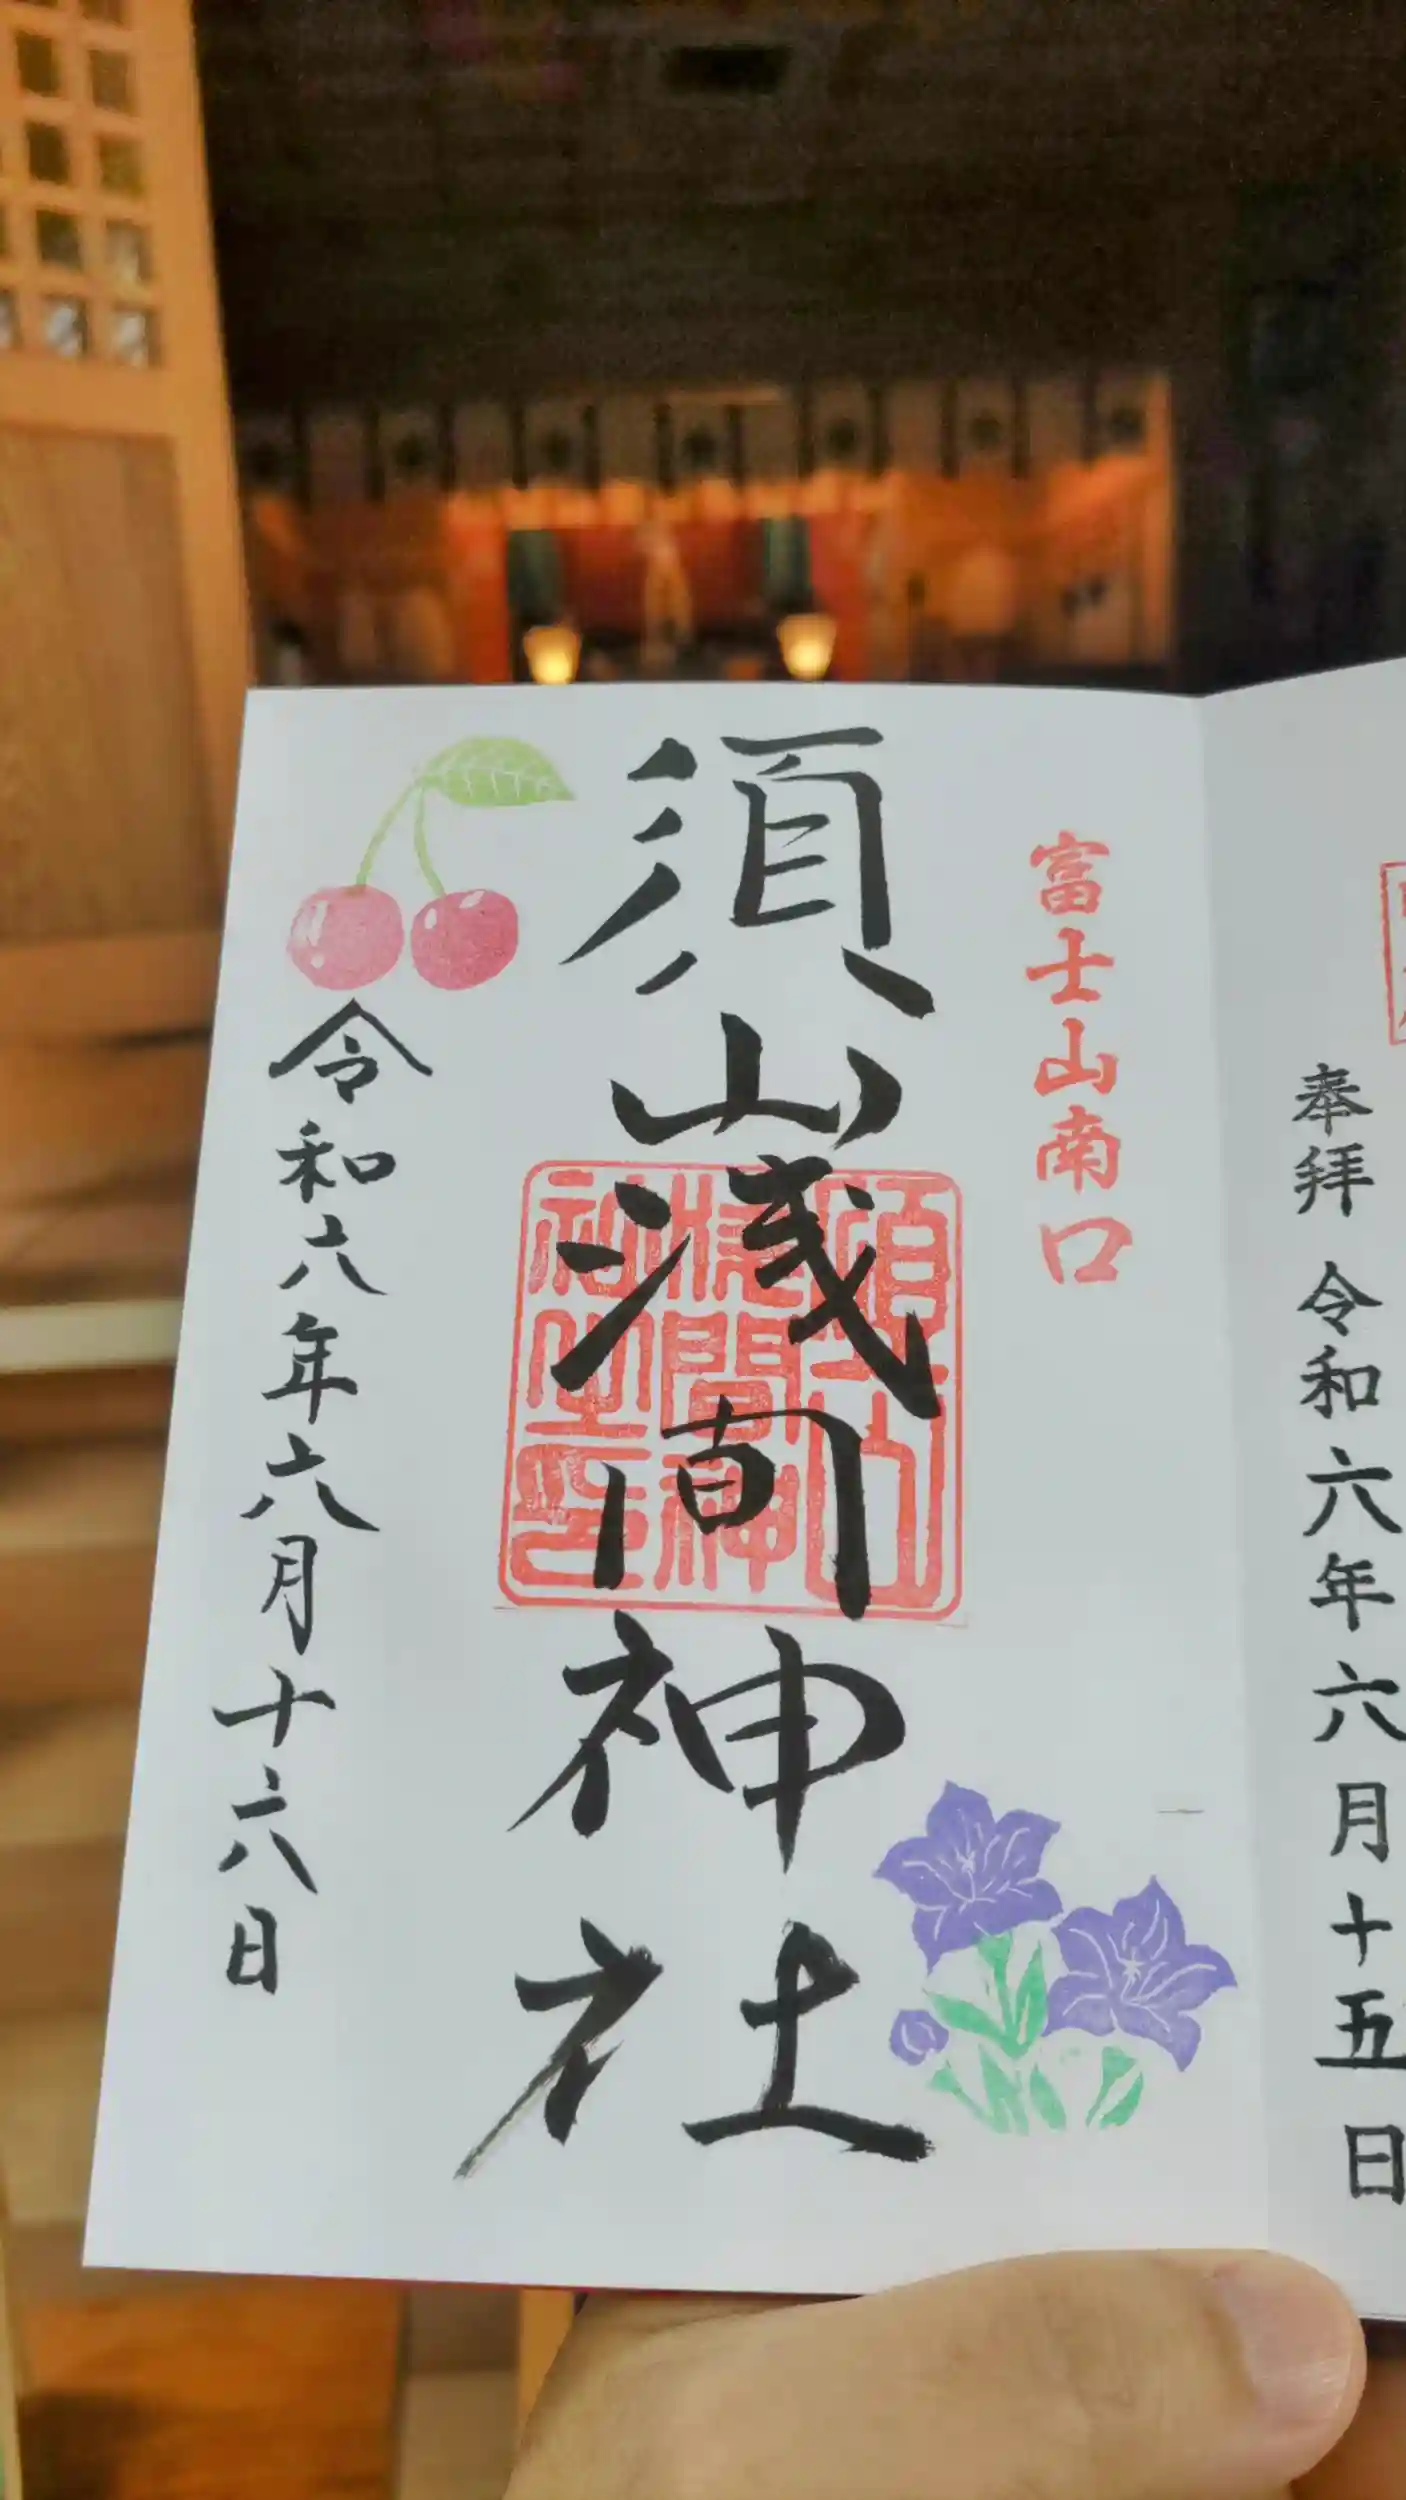 奉拝 令和六年六月十五日
富士山南口
須山浅间神社
須山
浅間神
社之印
令和六年六月十六日